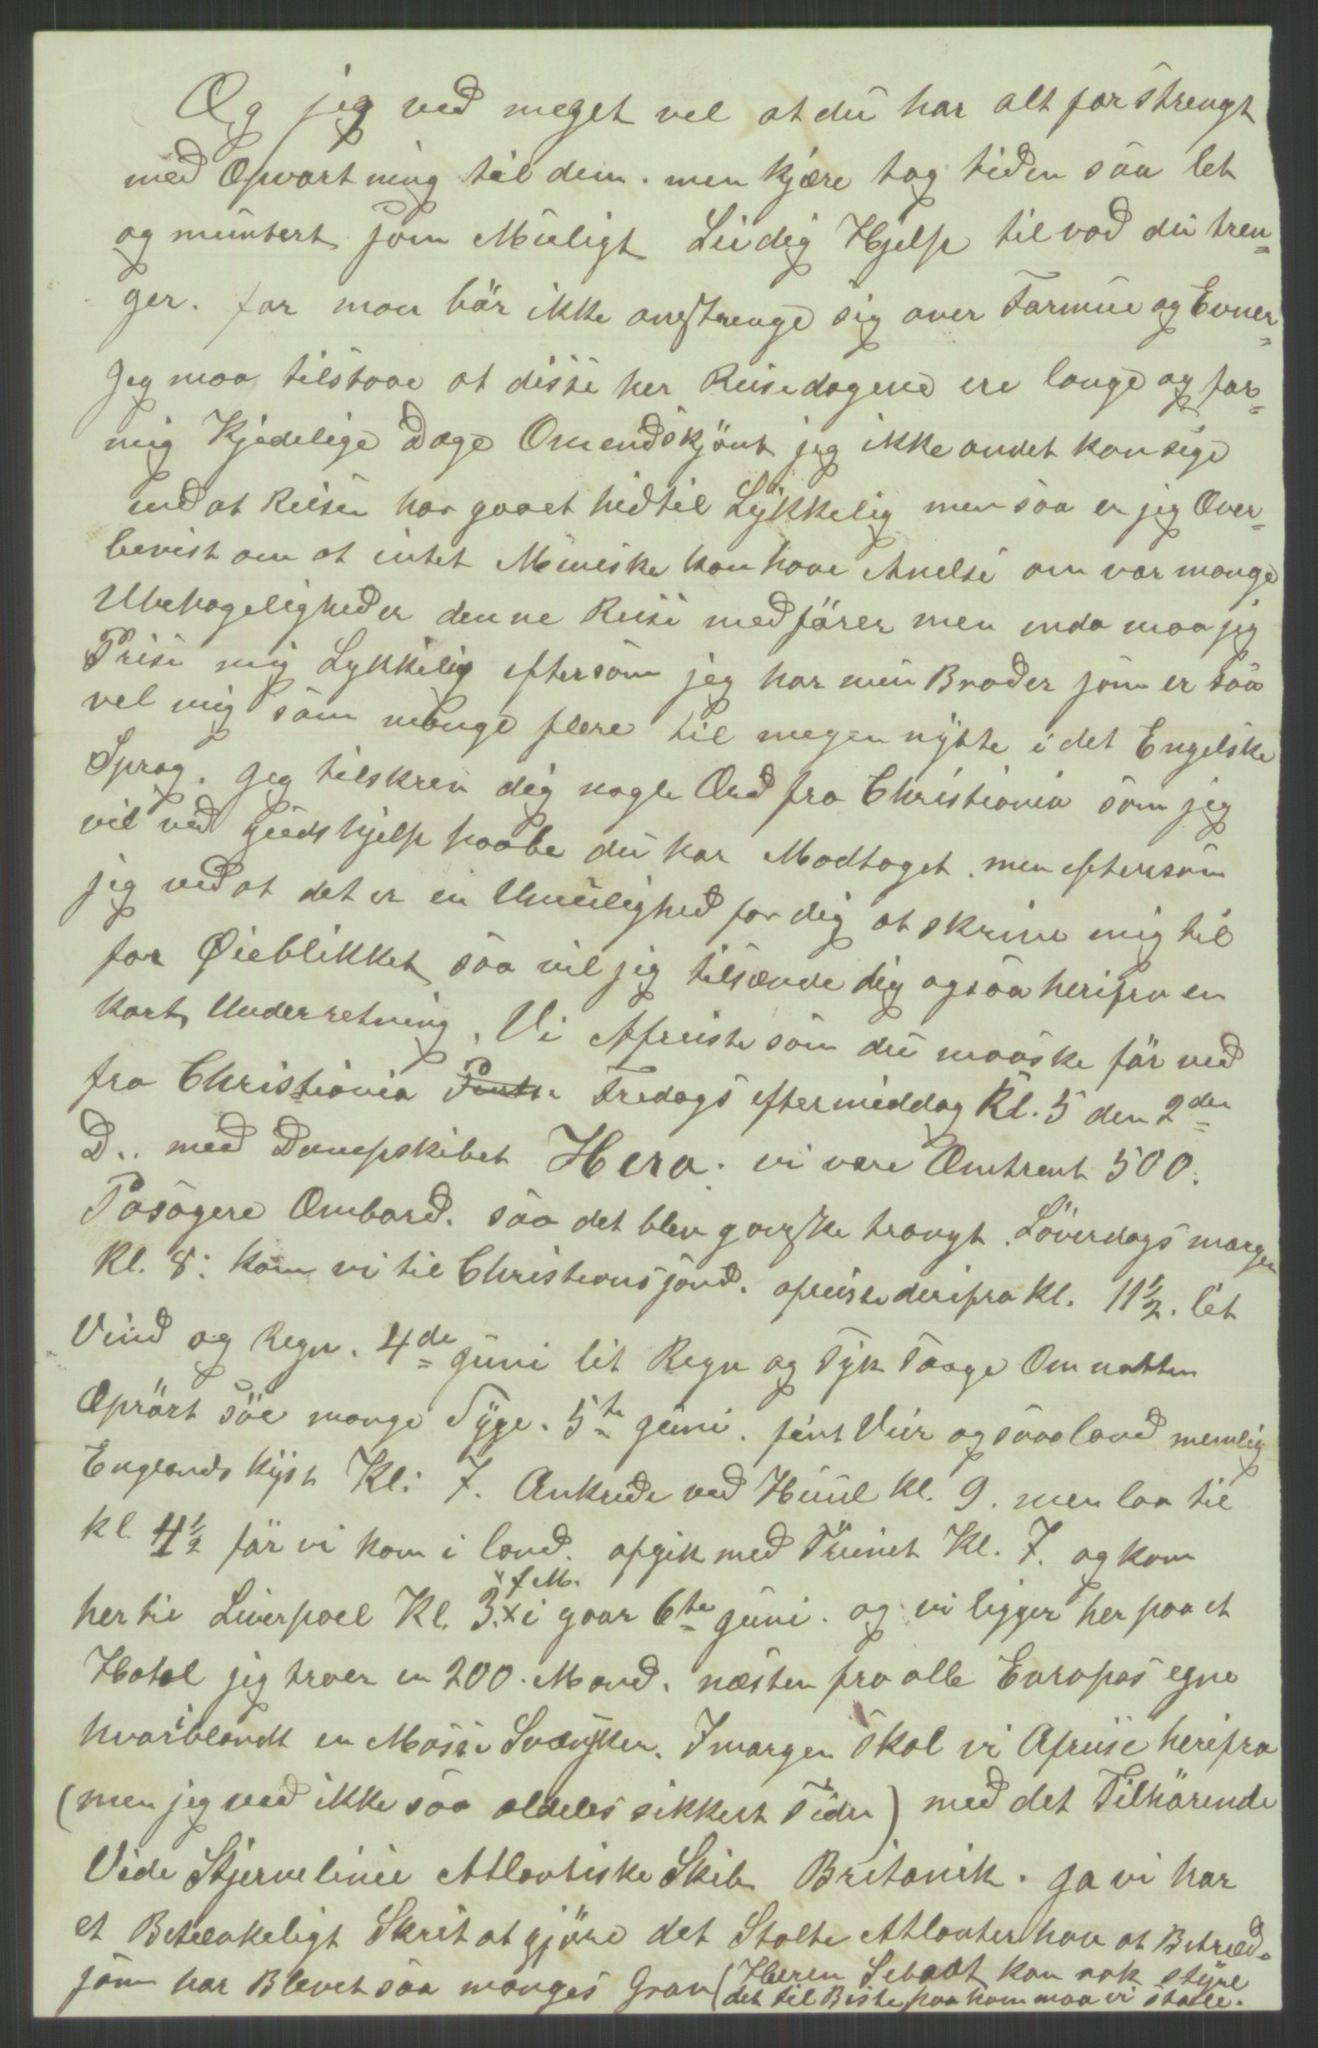 Og jeg ved meget vel at du har alt for strengt
med Opvartning til dem. men kjære tag tiden saa let
og muntert som Muligt Lei dig Hjelp til vad du tren=
ger. for man bör ikke anstrenge sig over Formue og Evner=
Jeg maa tilstaae at disse her Reisedagene ere lange og for=
mig Kjedelige Dage Omendskjönt jeg ikke andet kan sige
end at Reisen har gaaet hidtil Lykkelig men saa er jeg Over=
bevist om at intet Meniske kan have Anelse om vor mange
Ubehageligheder denne Reise medförer men enda maa jeg
Prise mig Lykkelig eftersom jeg har min Broder som er saa
vel mig som mange flere til megen nytte i det Engelske
Sprog. Jeg tilskrev dig nogle Ord fra Christiania som jeg
vil ved Guds hjelp haabe du har Modtaget. men eftersom
jeg ved at det er en Umulighed for dig at skrive mig til
for Øieblikket saa vil jeg tilsænde dig ogsaa herifra en
kort Underretning. Vi Afreiste som du maaske får ved
fra Christiania Fredags eftermiddag Kl. 5 den 2den
D.. med Dampskibet Hero. vi vare Omtrent 500.
Pasagere Ombord. saa det blev ganske trangt. Löverdags morgen
Kl. 8. kom vi til Christiansand. afreiste derifra Kl. 11½. let
Vind og Regn. 4de Juni lit Regn og Tyk Taage Om natten
Oprört söe mange Syge. 5te Juni. fint Veir og saae land nemlig
Englands Kyst Kl: 7. Ankrede ved Huul Kl. 9. men laa til
Kl. 4½ för vi kom i land. afgik med Trinet Kl. 7. og kom
her til Liverpoel Kl. 3.x i gaar 6te Juni. og vi ligger her paa et
x f M.
Hotel jeg troer en 200. Mand. næsten fra alle Europas egne
hvoriblandt en Masse Svensker. I morgen skal vi Afreise herifra
(men jeg ved ikke saa aldeles sikkert Tiden) med det Tilhörende
Vide Stjernelinie Atlantiske Skib Britanik. Ja vi har
et Betænkeligt Skrit at gjöre det Stolte Atlanterhav at Betræde
som har Blevet saa manges Grav (Herren Sebaot kan nok styre
det til Beste paa ham maa vi stole.